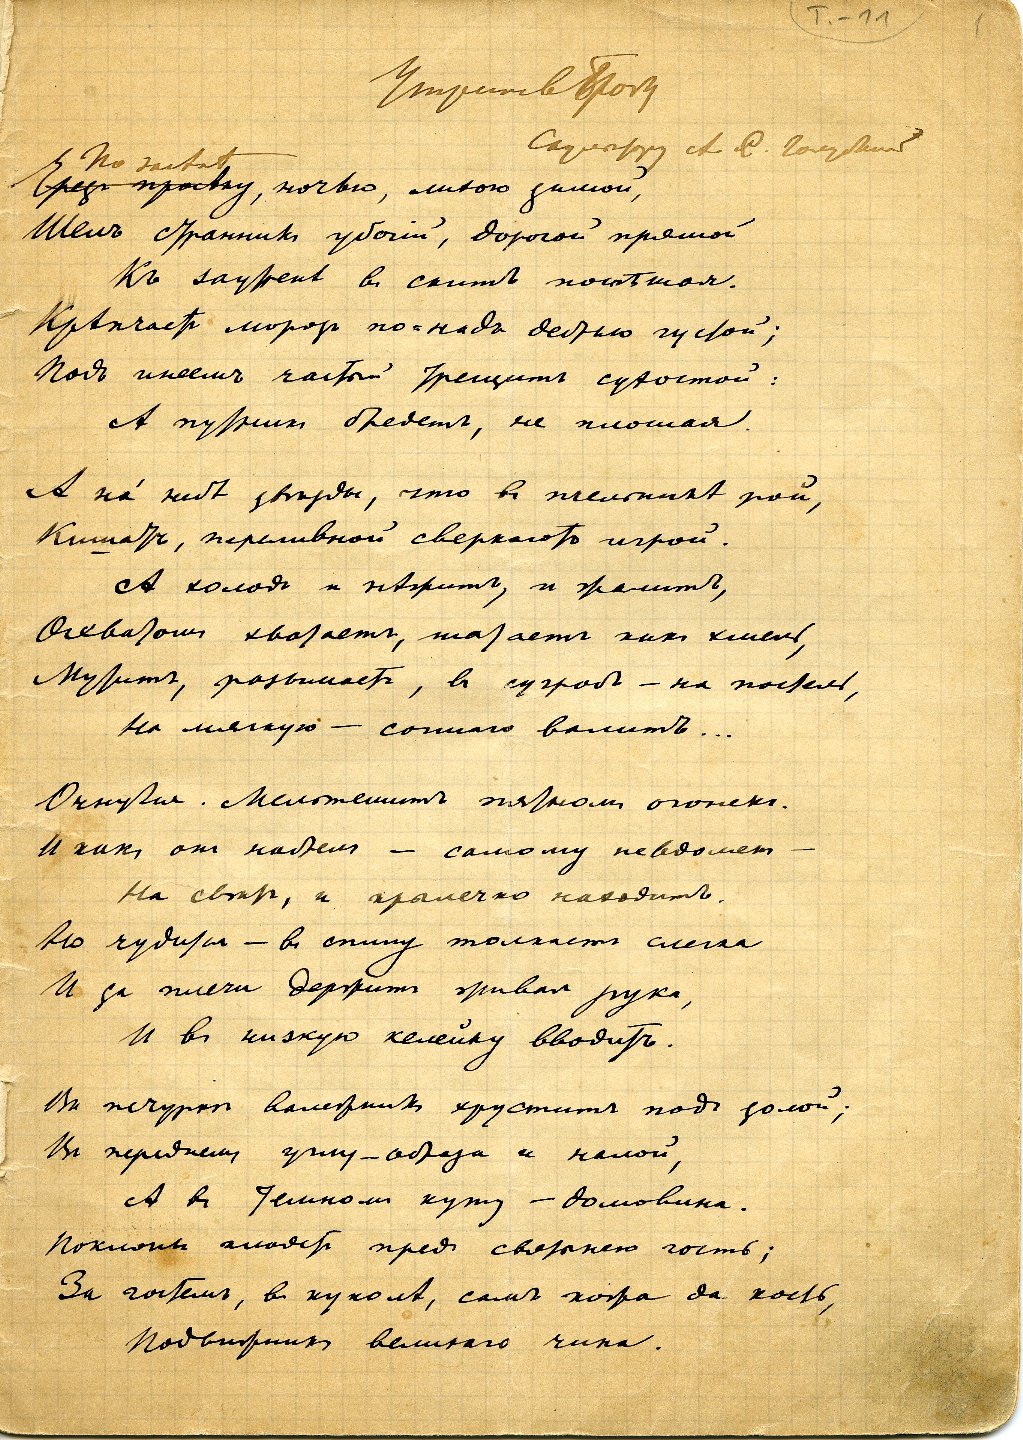 Т.-11
Утреня в гробу
Скульптору А. С. Голубкиной
По заячьей
Чрезъ просѣку, ночью, лютою зимой,
Шелъ странникъ убогій, дорогой прямой
Къ заутренѣ въ скитъ поспѣшая.
Крѣпчаетъ морозъ по-надъ дебрью густой;
Подъ инеемъ частый трещитъ сухостой:
А путникъ бредетъ, не плошая.
А на́ небѣ звѣзды, что въ пчельникѣ рой,
Кишатъ, переливной сверкаютъ игрой.
А холодъ и нѣжитъ, и жалитъ,
Охватомъ хватаетъ, шатаетъ какъ хмель,
Мутитъ, разымаетъ, въ сугробъ – на постель,
На мягкую – соннаго валитъ...
Очнулся. Мельтешитъ пятномъ огонекъ.
И какъ онъ набрелъ – самому невдомекъ –
На свѣтъ, и крылечко находитъ.
Но чудится – въ спину толкаетъ слегка
И за плечи держитъ живая рука,
И въ низкую келейку вводитъ.
Въ печуркѣ валежникъ хруститъ подъ золой;
Въ переднемъ углу – образа и налой,
А въ темномъ куту – домовина.
Поклоны кладетъ предъ святынею гость;
За гостемъ, въ куколѣ, самъ кожа да кость,
Подвижникъ великаго чина.